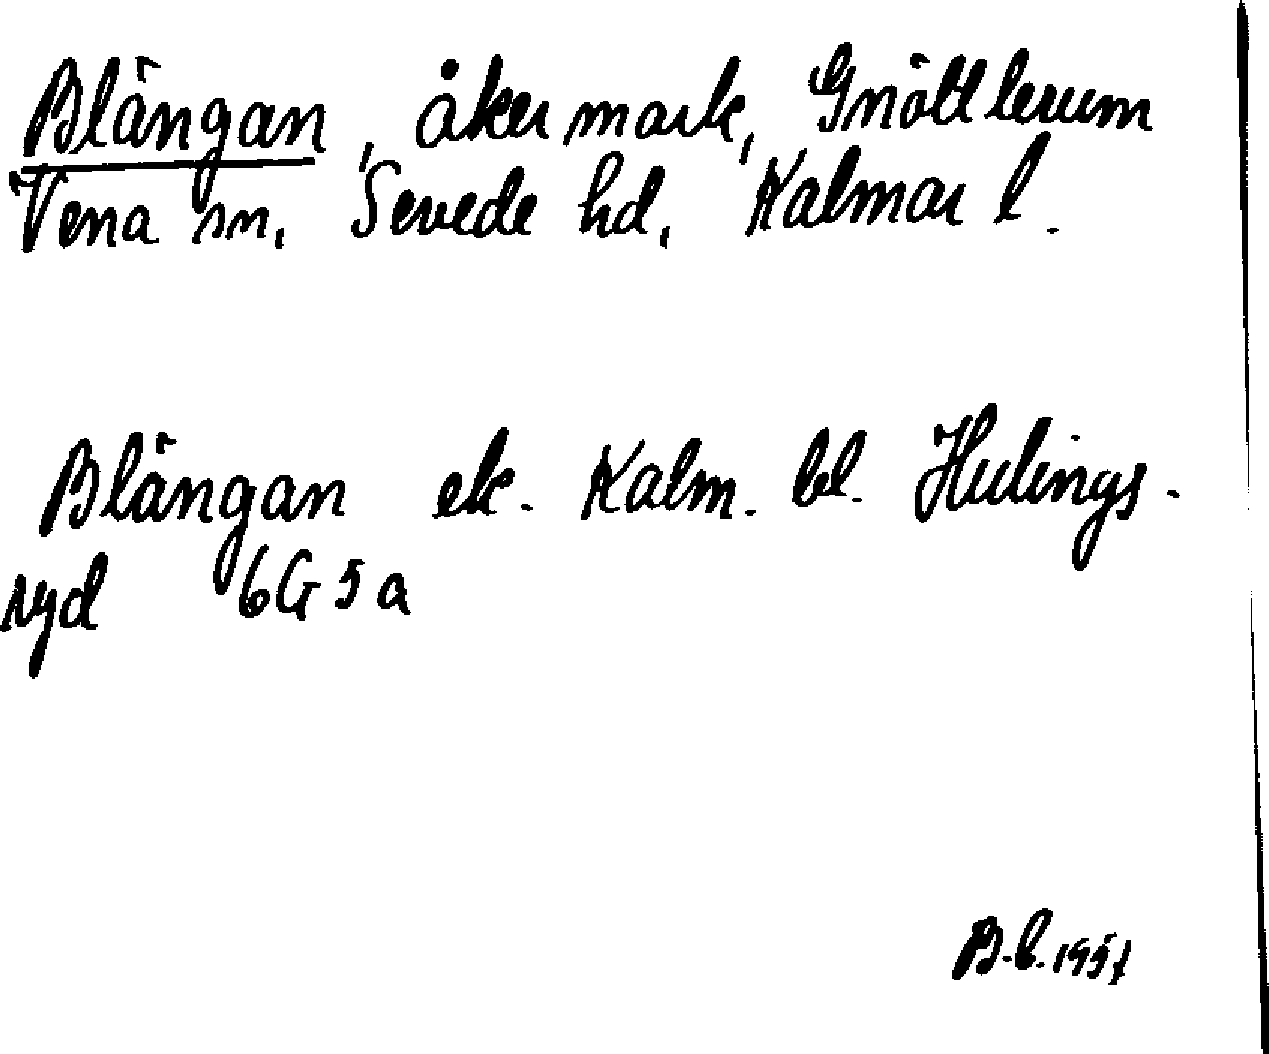 Blängan, åkermark, Gnöttlerum
Vena sn, Sevede hd, Kalmar l.
Blängan ek. Kalm. bl. Hulings-
ryd 6G 5a
B.b. 1957